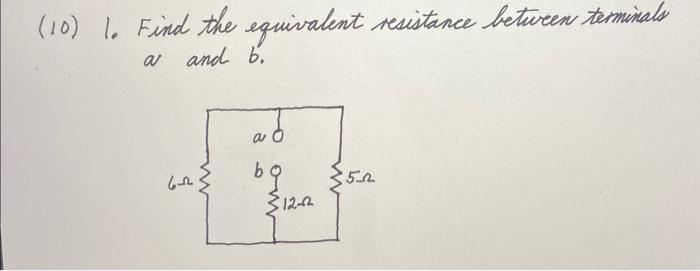 (10) 1. Find the equivalent resistance between terminals
a and b.
a
b
6Ω
5Ω
12Ω